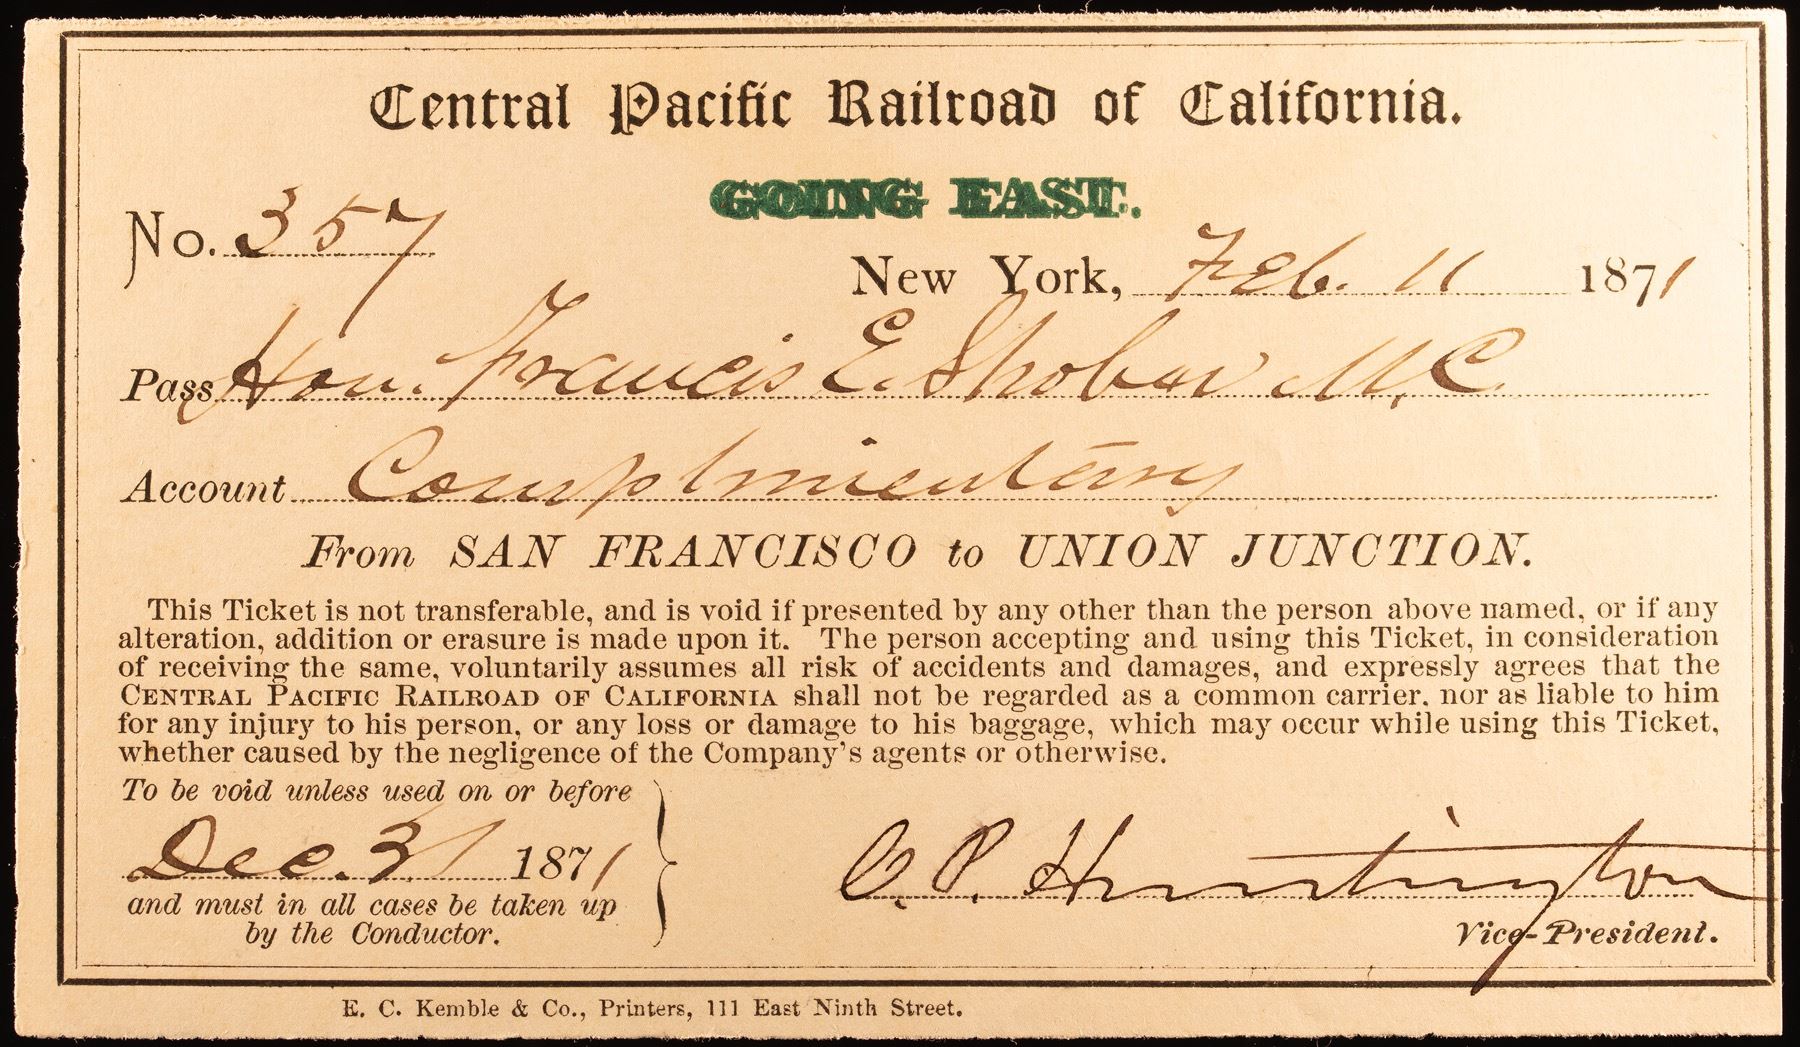 Central Pacific Railroad of California.
GOING EAST.
No. 357
New York, Feb. 11 1871
Pass Hon. Francis E. Shober M.C.
Account Complimentary
From SAN FRANCISCO to UNION JUNCTION.
This Ticket is not transferable, and is void if presented by any other than the person above named, or if any
alteration, addition or erasure is made upon it. The person accepting and using this Ticket, in consideration
of receiving the same, voluntarily assumes all risk of accidents and damages, and expressly agrees that the
CENTRAL PACIFIC RAILROAD OF CALIFORNIA shall not be regarded as a common carrier. nor as liable to him
for any injury to his person, or any loss or damage to his baggage, which may occur while using this Ticket,
whether caused by the negligence of the Company's agents or otherwise.
To be void unless used on or before
Dec. 31 1871
and must in all cases be taken up
by the Conductor.
C. P. Huntington
Vice-President.
E. C. Kemble & Co., Printers, 111 East Ninth Street.